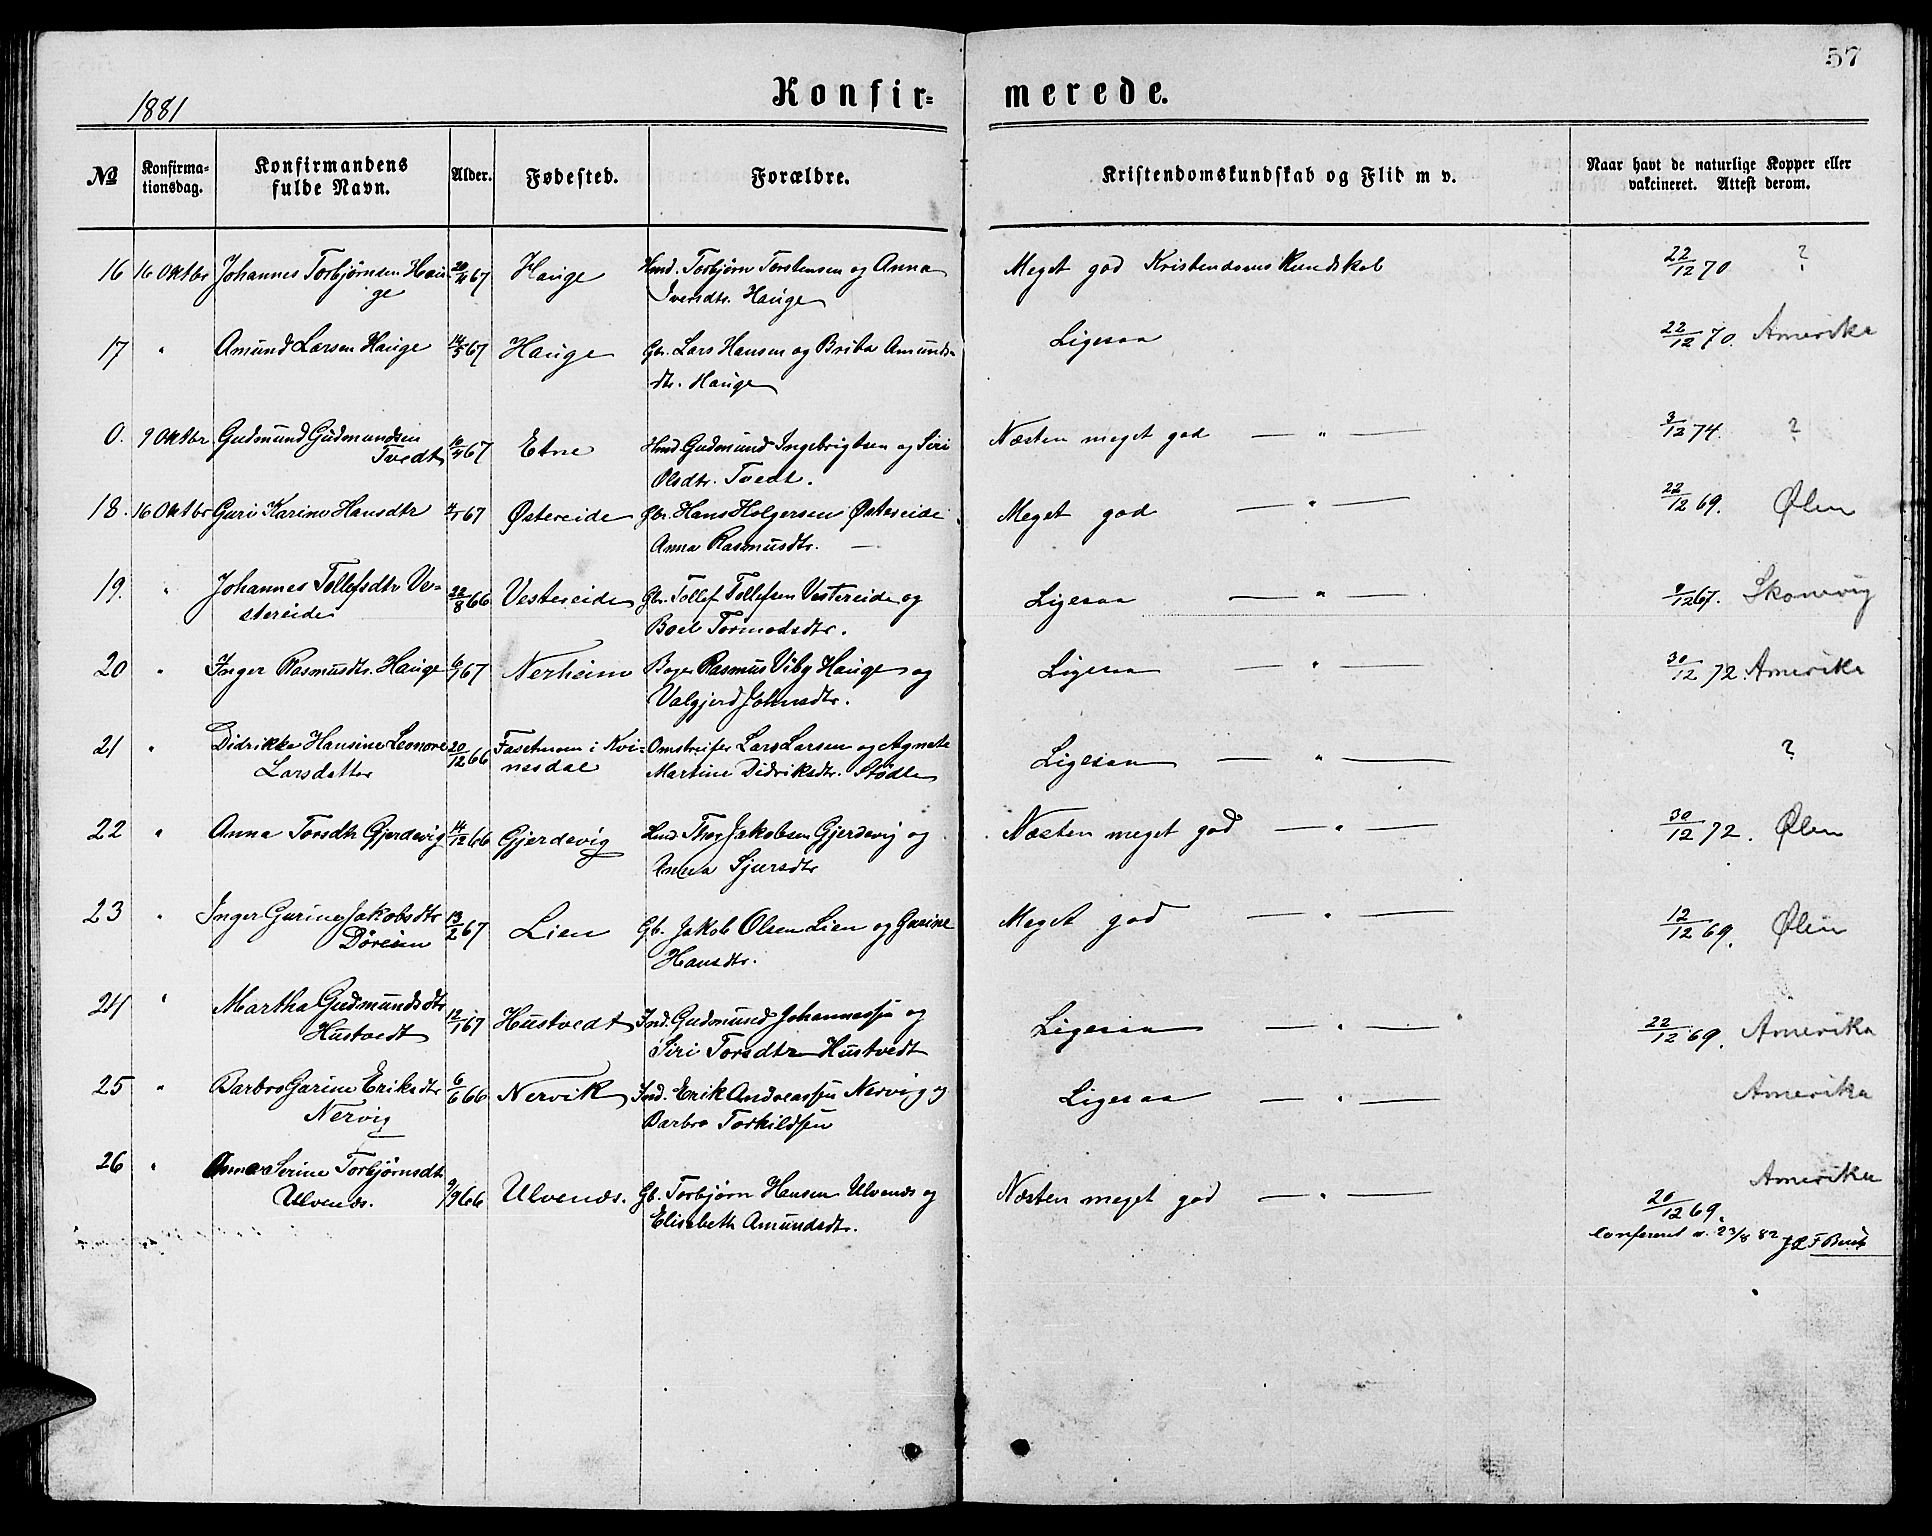 57
1881
Konfir= merede.
№ Konfirma- tionsdag. Konfirmandens fulde Navn. Alder. Fødested. Forældre. Kristendomskundskab og Flid m v. Naar havt de naturlige Kopper eller vakcineret. Attest derom.
16 16 Oktbr Johannes Torbjørnsen Hau- 20/11 67 Hauge Hmd. Torbjørn Torstensen og Anna Meget god Kristendomskundskab 22/12 70 ?
ge Iversdtr. Hauge
17 " Amund Larsen Hauge 14/5 67 Hauge Gbr. Lars Hansen og Brita Amunds- Ligesaa 22/12 70. Amerika
dtr. Hauge
0. 9 Oktbr. Gudmund Gudmundsen 67 Etne Hmd Gudmund Ingebrigtsen og Siri Næsten meget god — " — 3/12 74. ?
Tvedt Olsdtr. Tvedt.
18. 16 Oktbr Guri Karine Hansdtr 67 Østereide Gbr. Hans Holgersen Østereide Meget god — " — 22/12 69. Ølen
Anna Rasmusdtr. —
19. " Johannes Tollefsdtr Ve- 22/8 66 Vestereide Gbr. Tollef Tollefsen Vestereide og Ligesaa — " — 9/12 67. Skonevig
stereide Boel Tormodsdtr.
20 " Inger Rasmusdtr. Hauge 67 Nerheim Rasmus Viby Hauge og Ligesaa — " — 30/12 72. Amerika
Valgjerd Johnsdtr.
21 " Didrikke Hansine Leonore 20/12 66 i Kvi- Omstreifer Lars Larsen og Agnete Ligesaa — " — ?
Larsdatter nesdal Martine Didriksdtr. Stødle
22 " Anna Torsdtr Gjerdevig 14/12 66 Gjerdevig Hmd. Thor Jakobsen Gjerdevig og Næsten meget god — " — 30/12 72. Ølen
Anna Sjursdtr
23 " Inger Gurine Jakobsdtr 13/2 67 Lien Gb. Jakob Olsen Lien og Gurine Meget god — " — 12/12 69. Ølen
Døreim Hansdtr.
24 " Martha Gudmundsdtr 12/1 67 Hustvedt Ind. Gudmund Johannessen og Ligesaa — " — 22/12 69. Amerika
Hustvedt Siri Torsdtr Hustvedt
25 " Barbro Garine Eriksdtr 6/6 66 Nervik Ind. Erik Andreassen Nervig og Ligesaa — " — Amerika
Nervig Barbro Torkildsen
26 " Anna Serine Torbjørnsdt. 9/9 66 Ulvenæs. Gb. Torbjørn Hansen Ulvenæs og Næsten meget god — " — Amerika
Ulvenæs. Elisabeth Amundsdtr. 20/12 69.
Confereret d. 23/8 82